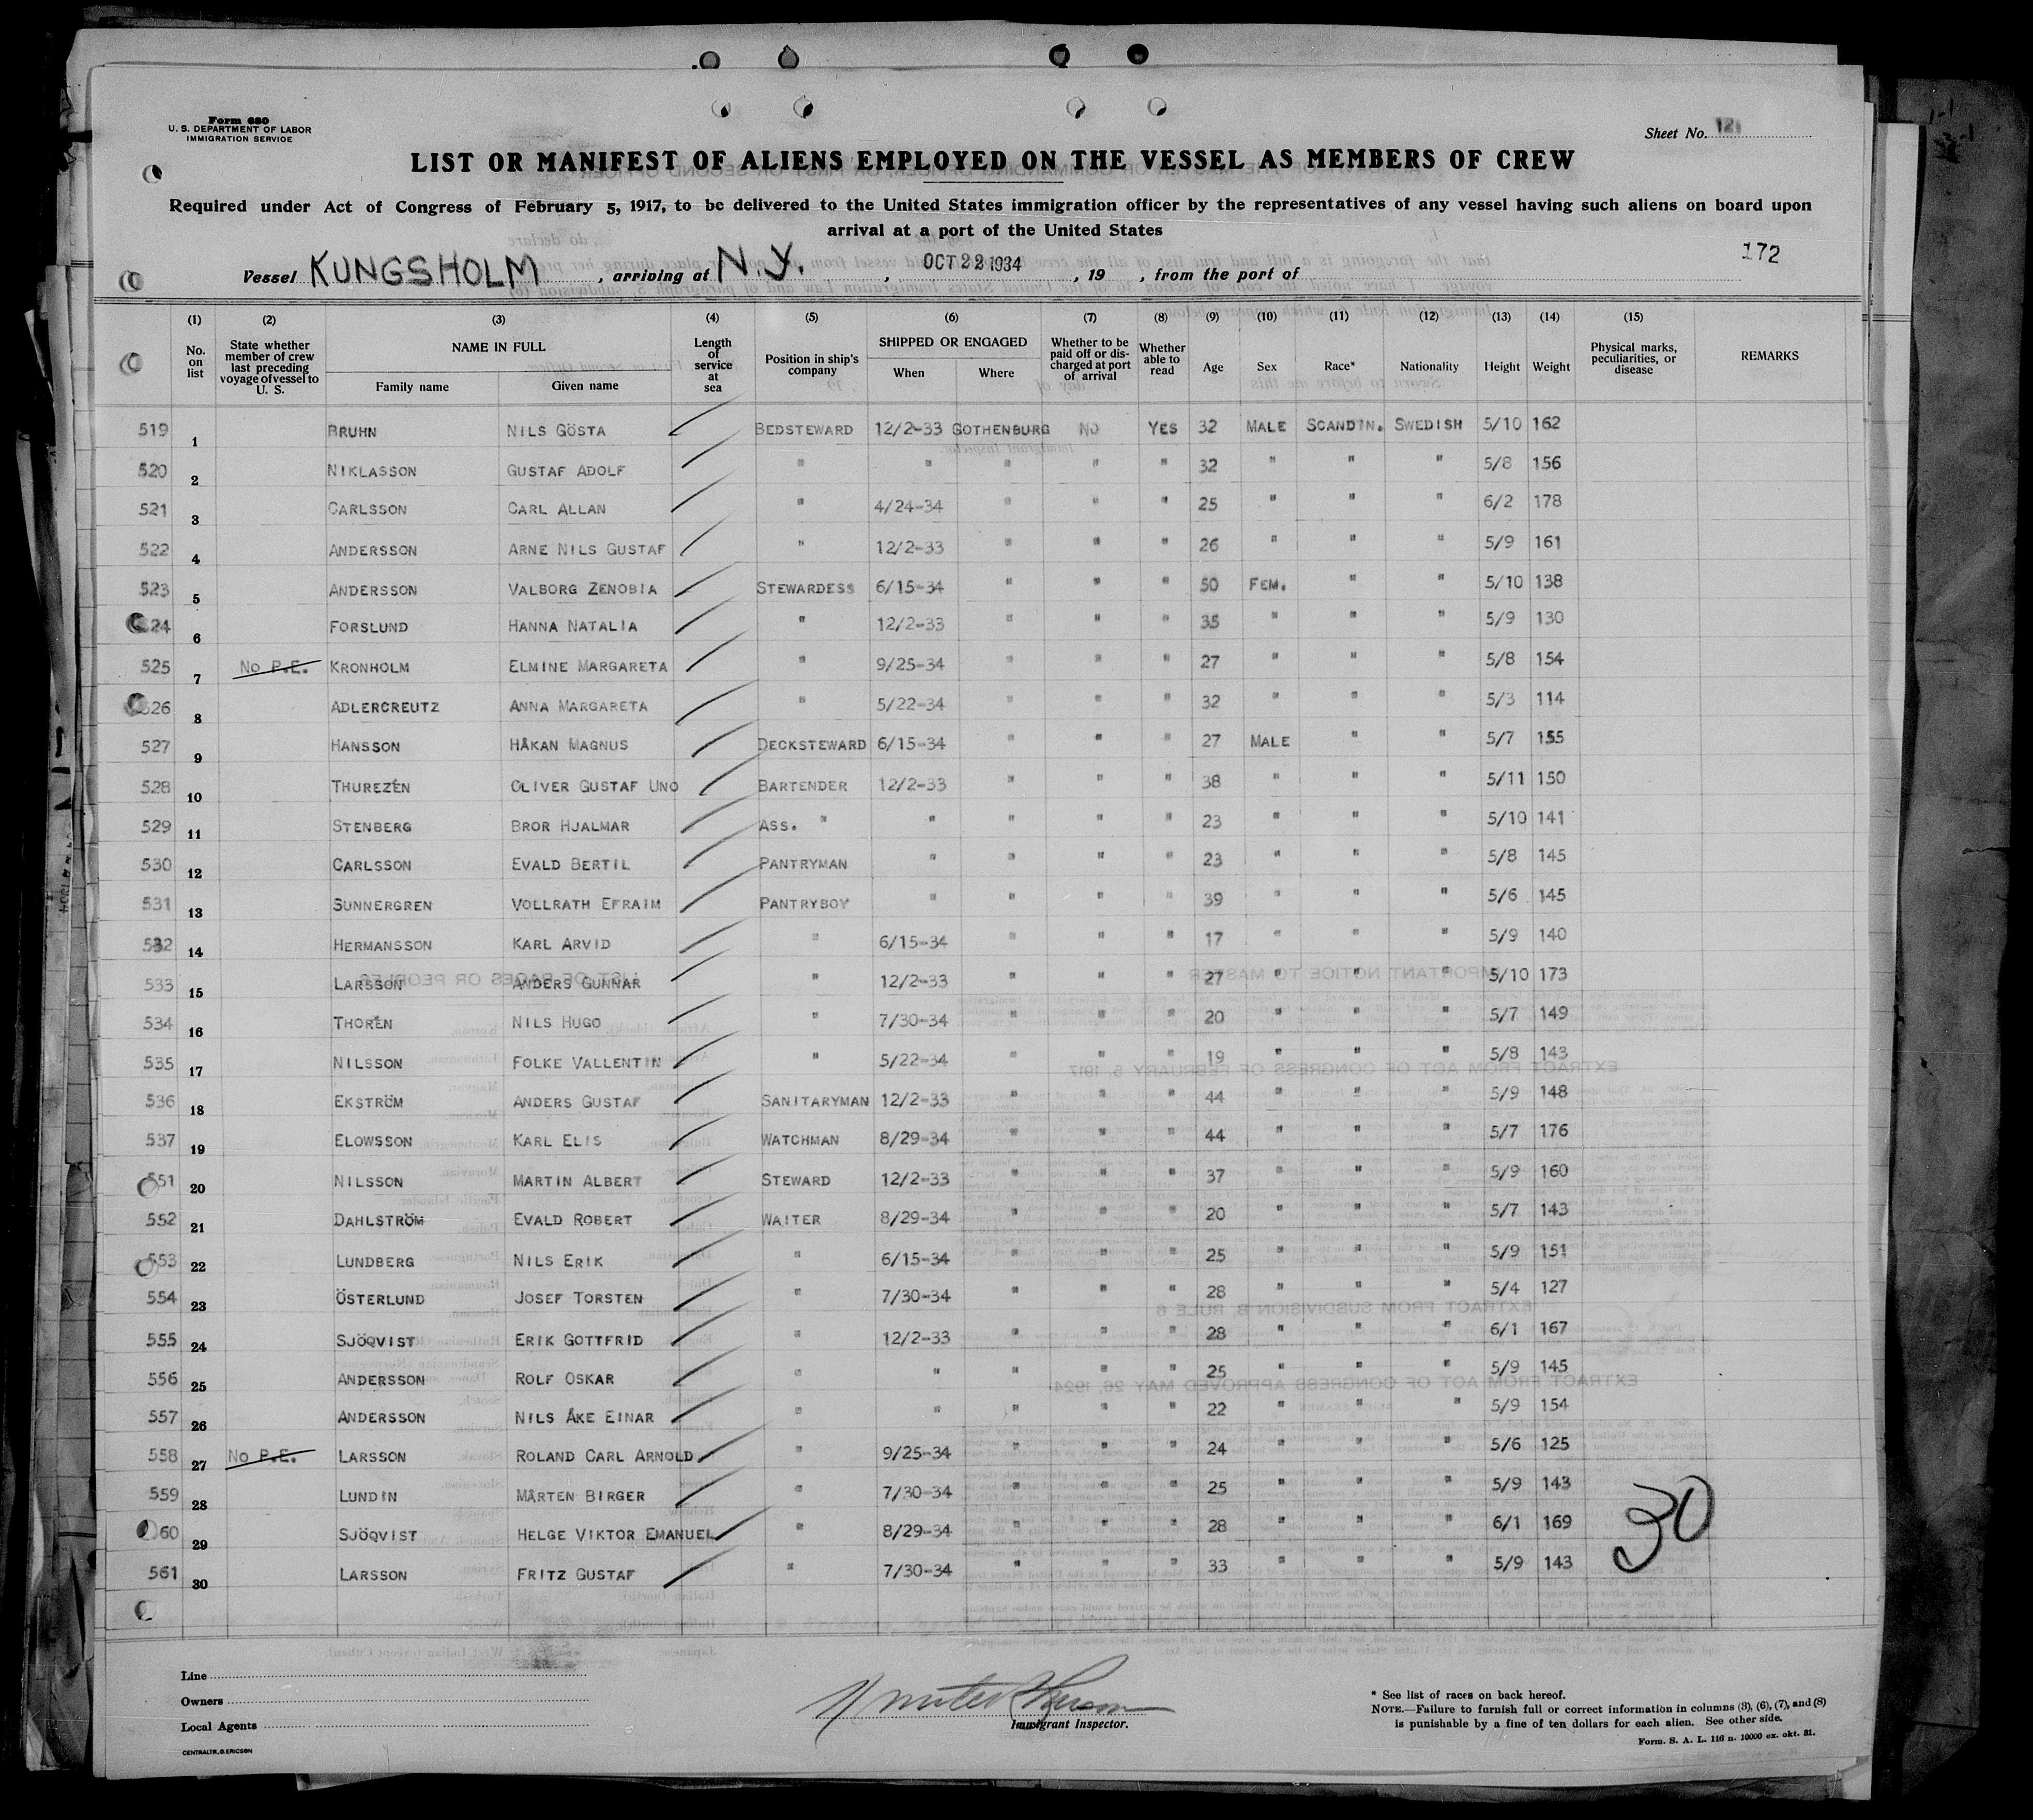 Form 680
U. S. DEPARTMENT OF LABOR
IMMIGRATION SERVICE
Sheet No. 12
LIST OR MANIFEST OF ALIENS EMPLOYED ON THE VESSEL AS MEMBERS OF CREW
Required under Act of Congress of February 5, 1917, to be delivered to the United States immigration officer by the representatives of any vessel having such aliens on board upon
arrival at a port of the United States
172
Vessel KUNGSHOLM , arriving at N.Y. , OCT 22 1934 , 19 , from the port of
(1) No. on list (2) State whether member of crew last preceding voyage of vessel to U. S. (3) NAME IN FULL Family name Given name (4) Length of service at sea (5) Position in ship's company (6) SHIPPED OR ENGAGED When Where (7) Whether to be paid off or discharged at port of arrival (8) Whether able to read (9) Age (10) Sex (11) Race* (12) Nationality (13) Height (14) Weight (15) Physical marks, peculiarities, or disease REMARKS
519 1 BRUHN NILS GÖSTA BEDSTEWARD 12/2-33 GOTHENBURG NO YES 32 MALE SCANDIN. SWEDISH 5/10 162
520 2 NIKLASSON GUSTAF ADOLF " " " " " 32 " " " 5/8 156
521 3 CARLSSON CARL ALLAN " 4/24-34 " " " 25 " " " 6/2 178
522 4 ANDERSSON ARNE NILS GUSTAF " 12/2-33 " " " 26 " " " 5/9 161
523 5 ANDERSSON VALBORG ZENOBIA STEWARDESS 6/15-34 " " " 50 FEM. " " 5/10 138
524 6 FORSLUND HANNA NATALIA " 12/2-33 " " " 35 " " " 5/9 130
525 7 No P.E. KRONHOLM ELMINE MARGARETA " 9/25-34 " " " 27 " " " 5/8 154
526 8 ADLERCREUTZ ANNA MARGARETA " 5/22-34 " " " 32 " " " 5/3 114
527 9 HANSSON HÅKAN MAGNUS DECKSTEWARD 6/15-34 " " " 27 MALE " " 5/7 155
528 10 THUREZÉN OLIVER GUSTAF UNO BARTENDER 12/2-33 " " " 38 " " " 5/11 150
529 11 STENBERG BROR HJALMAR ASS. " " " " " 23 " " " 5/10 141
530 12 CARLSSON EVALD BERTIL PANTRYMAN " " " " 23 " " " 5/8 145
531 13 SUNNERGREN VOLLRATH EFRAIM PANTRYBOY " " " " 39 " " " 5/6 145
532 14 HERMANSSON KARL ARVID " 6/15-34 " " " 17 " " " 5/9 140
533 15 LARSSON ANDERS GUNNAR " 12/2-33 " " " 27 " " " 5/10 173
534 16 THORÉN NILS HUGO " 7/30-34 " " " 20 " " " 5/7 149
535 17 NILSSON FOLKE VALLENTIN " 5/22-34 " " " 19 " " " 5/8 143
536 18 EKSTRÖM ANDERS GUSTAF SANITARYMAN 12/2-33 " " " 44 " " " 5/9 148
537 19 ELOWSSON KARL ELIS WATCHMAN 8/29-34 " " " 44 " " " 5/7 176
551 20 NILSSON MARTIN ALBERT STEWARD 12/2-33 " " " 37 " " " 5/9 160
552 21 DAHLSTRÖM EVALD ROBERT WAITER 8/29-34 " " " 20 " " " 5/7 143
553 22 LUNDBERG NILS ERIK " 6/15-34 " " " 25 " " " 5/9 151
554 23 ÖSTERLUND JOSEF TORSTEN " 7/30-34 " " " 28 " " " 5/4 127
555 24 SJÖQVIST ERIK GOTTFRID " 12/2-33 " " " 28 " " " 6/1 167
556 25 ANDERSSON ROLF OSKAR " " " " " 25 " " " 5/9 145
557 26 ANDERSSON NILS ÅKE EINAR " " " " " 22 " " " 5/9 154
558 27 No P.E. LARSSON ROLAND CARL ARNOLD " 9/25-34 " " " 24 " " " 5/6 125
559 28 LUNDIN MÅRTEN BIRGER " 7/30-34 " " " 25 " " " 5/9 143
560 29 SJÖQVIST HELGE VIKTOR EMANUEL " 8/29-34 " " " 28 " " " 6/1 169
561 30 LARSSON FRITZ GUSTAF " 7/30-34 " " " 33 " " " 5/9 143
30
Line
Owners
Local Agents
Immigrant Inspector.
CENTRALTR., G. ERICSON
* See list of races on back hereof.
NOTE.—Failure to furnish full or correct information in columns (3), (6), (7), and (8)
is punishable by a fine of ten dollars for each alien. See other side.
Form. S. A. L. 116 n. 10000 ex. okt. 31.